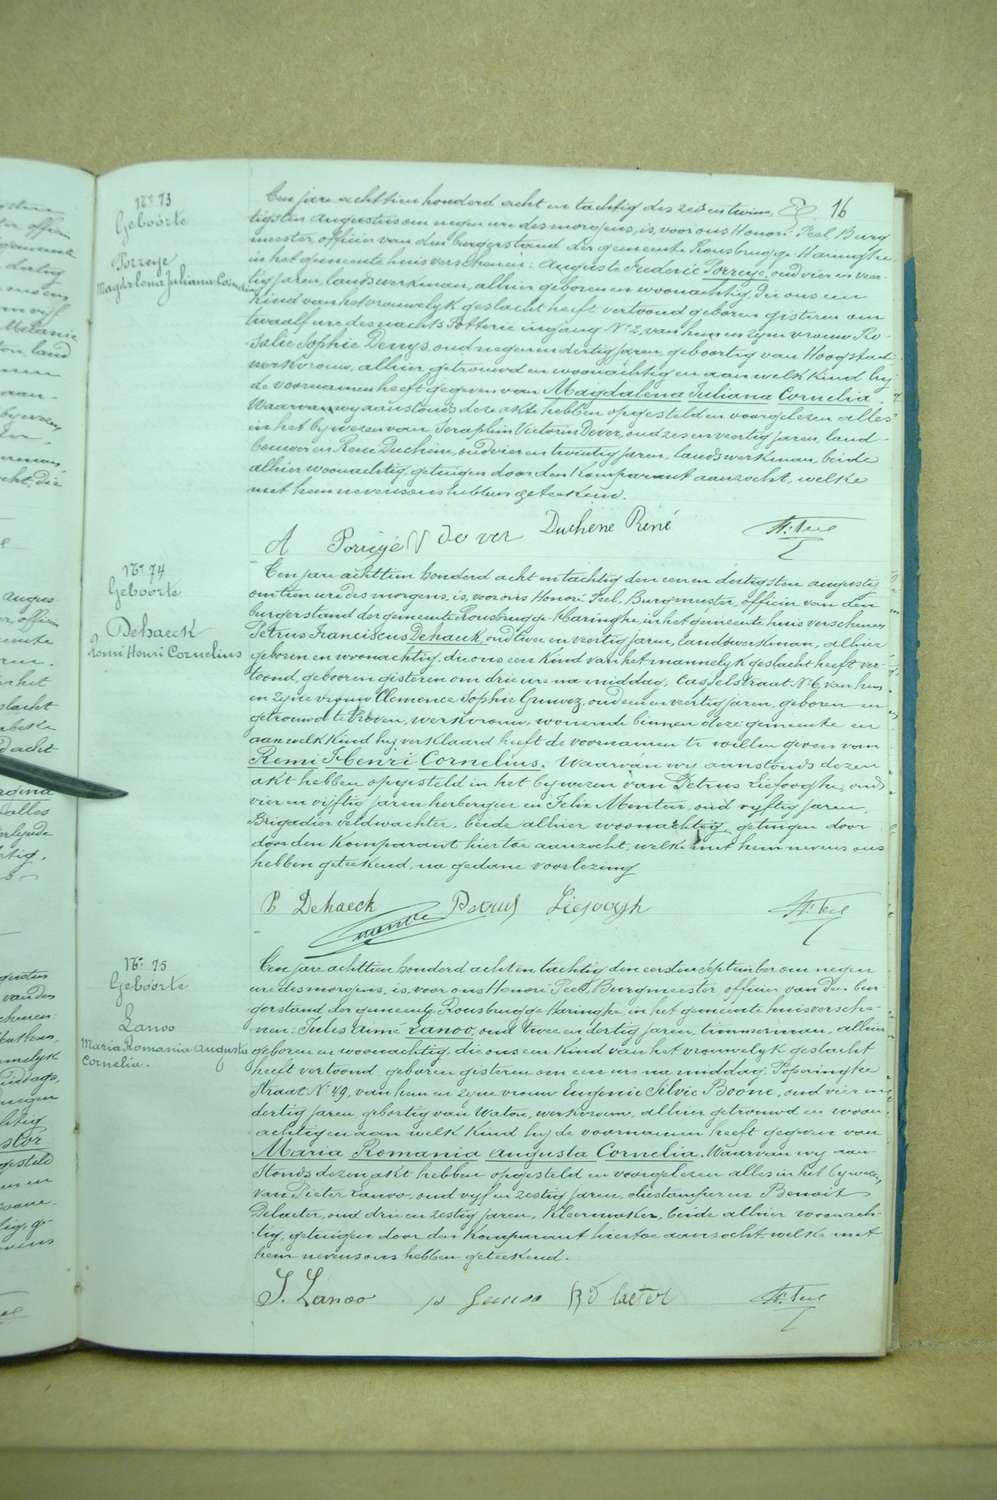 16
Nr. 73
Geboorte
Porreye
Magdalena Juliana Cornelia
Een jare achttien honderd acht en tachtig des zes en twin-
tigsten Augustus om negen ure des morgens, is, voor ons Honoré Peel, Burg
meester, officier van den burgerstand der gemeente Rousbrugge Haringhe
in het gemeentehuis verschenen: Auguste Frederic Porreye, oud vier en veer-
tig jaren, landswerkman, alhier geboren en woonachtig, die ons een
kind van het vrouwelyk geslacht heeft vertoond geboren gisteren om
twaalf ure des nachts Potterie ingang No 2, van hem en zyne vrouw Ro-
salie Sophie Denys, oud negen en dertig jaren, geboortig van Hoogstade
werkvrouw, alhier getrouwd en woonachtig en aan welk kind hy
de voornamen heeft gegeven van Magdalena Juliana Cornelia.
Waarvan wy aanstonds deze akte hebben opgesteld en voorgelezen alles
in het bywezen van Seraphin Victorin Dever, oud zes en veertig jaren, land-
bouwer en René Duchêne, oud vier en twintig jaren, landswerkman, beide
alhier woonachtig, getuigen door den komparant aanzocht, welke
met hem nevens ons hebben geteekend.
A Porreyé Dever Duchêne René H. Peel
Nr. 74
Geboorte
Dehaeck
Remi Henri Cornelius
Een jare achttien honderd acht en tachtig den een en dertigsten augusti
om tien ure des morgens, is, voor ons Honoré Peel, Burgmeester, officier van den
burgerstand der gemeente Rousbrugge Haringhe, in het gemeente huis verschenen
Petrus Franciscus Dehaeck, oud twee en veertig jaren, landswerkman, alhier
geboren en woonachtig, die ons een kind van het mannelyk geslacht heeft ver-
toond, geboren gisteren om drie ure na middag, Casselstraat No 6, van hem
en zyne vrouw Clemence Sophie Gruwez, oud een en veertig jaren, geboren en
getrouwd te Proven, werkvrouw, wonende binnen deze gemeente en
aan welk kind hy verklaard heeft de voornamen te willen geven van
Remi Henri Cornelius. Waarvan wy aanstonds dezen
akt hebben opgesteld in het bywezen van Petrus Liefooghe, oud
vier en vyftig jaren herbergier en Felix Menten, oud vyftig jaren,
Brigadier veldwachter, beide alhier woonachtig, getuigen door
door den komparant hiertoe aanzocht, welke met hem nevens ons
hebben geteekend, na gedane voorlezing
P Dehaeck Petrus Liefoogh H. Peel
Nr. 75
Geboorte
Lanoo
Maria Romania Augusta
Cornelia.
Een jare achttien honderd acht en tachtig den eersten September om negen
ure des morgens, is, voor ons Honoré Peel, Burgmeester officier van den bur-
gerstand der gemeente Rousbrugge Haringhe, in het gemeente huis versche-
nen: Jules Aimé Lanoo, oud twee en dertig jaren, timmerman, alhier
geboren en woonachtig, die ons een kind van het vrouwelyk geslacht
heeft vertoond, geboren gisteren om een ure na middag, Poperinghe
straat No 49, van hem en zyne vrouw Eugenie Silvie Boone, oud vier en
dertig jaren, geboortig van Watou, werkvrouw, alhier getrouwd en woon-
achtig en aan welk kind hy de voornamen heeft gegeven van
Maria Romania Augusta Cornelia. Waarvan wy aan-
stonds dezen akt hebben opgesteld en voorgelezen alles in het bywezen
van Pieter Lanoo, oud vyf en zestig jaren, oliestamper en Benoit
Delaeter, oud drie en zestig jaren, kleermaker, beide alhier woonach-
tig, getuigen door den komparant hiertoe aanzocht, welke met
hem nevens ons hebben geteekend.
J. Lanoo p Lanoo B D laeter H. Peel